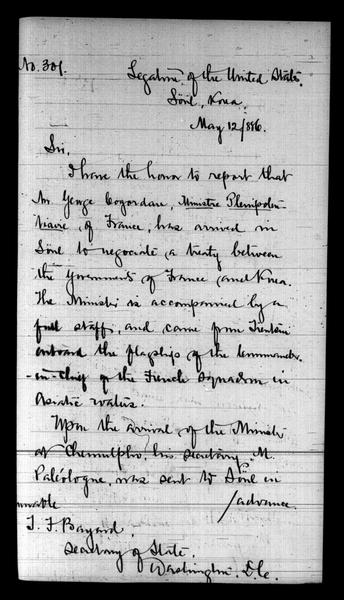 No. 301.
Legation of the United States.
Söul, Korea.
May 12/886.
Sir,
I have the honor to report that
Mr George Cogordan, Ministre Plenipoten-
tiaire, of France, has arrived in
Söul to negociate a treaty between
the Governments of France and Korea.
The Minister is accompanied by a
full staff, and came from Tientsin
onboard the flagship of the Commander-
-in-Chief of the French Squadron in
Asiatic waters.
Upon the arrival of the Minister
at Chemulpho, his secretary, M.
Paléologue, was sent to Söul in
/advance
T. F. Bayard,
Secretary of State.
Washington. D.C.